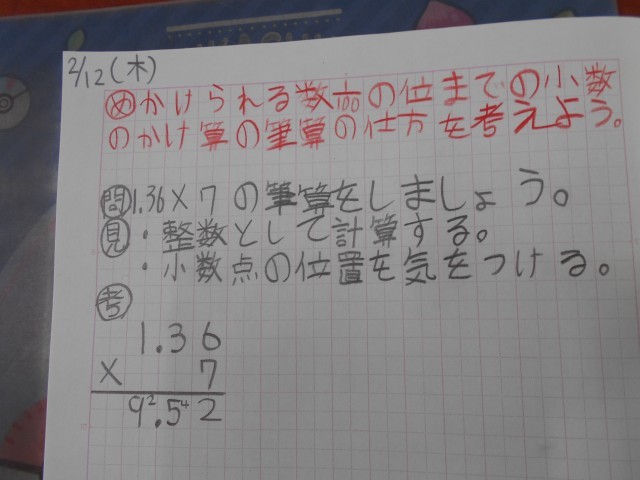 2/12(木)
めかけられる数1/100の位までの小数
のかけ算の筆算の仕方を考えよう。
問1.36×7の筆算をしましょう。
見・整数として計算する。
・小数点の位置を気をつける。
考
1.36
× 7
9².5⁴2